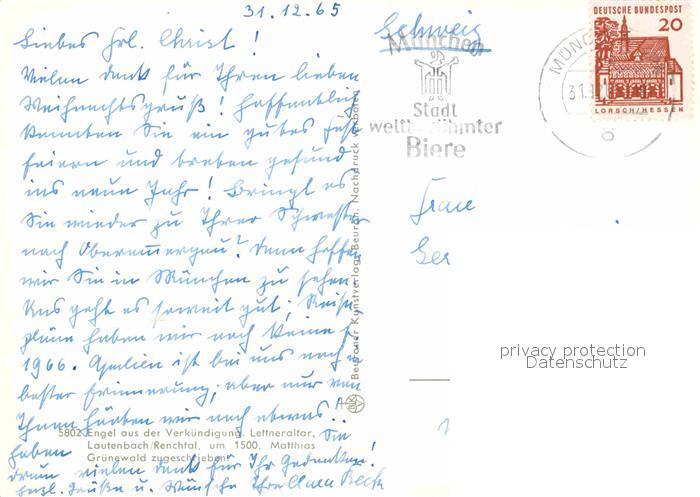 31.12.65
Liebes Frl. Christ!
Vielen Dank für Ihren lieben
Weihnachtsgruß! Hoffentlich
konnten Sie ein gutes Fest
feiern und bleiben gesund
ins neue Jahr! Bringt es
Sie wieder zu Ihrer Schwester
nach Oberammergau? Dann hoffen
wir Sie in München zu sehen.
Uns geht es soweit gut; Reise
pläne haben wir noch keine f.
1966. Apulien ist bei uns noch in
bester Erinnerung; aber nur von
Ihnen hörten wir noch etwas!! Sie
haben
drum vielen Dank für Ihr Gedenken!
herzl. Grüße u. Wünsche Ihre Clara Beck
5802 Engel aus der Verkündigung, Lettneraltar,
Lautenbach/Renchtal, um 1500, Matthias
Grünewald zugeschrieben
Beuroner Kunstverlag, Beuron. Nachdruck verboten
Schweiz
München
Stadt
weltberühmter
Biere
MÜNCH
31.1
DEUTSCHE BUNDESPOST
20
LORSCH/HESSEN
Frau
privacy protection
Datenschutz